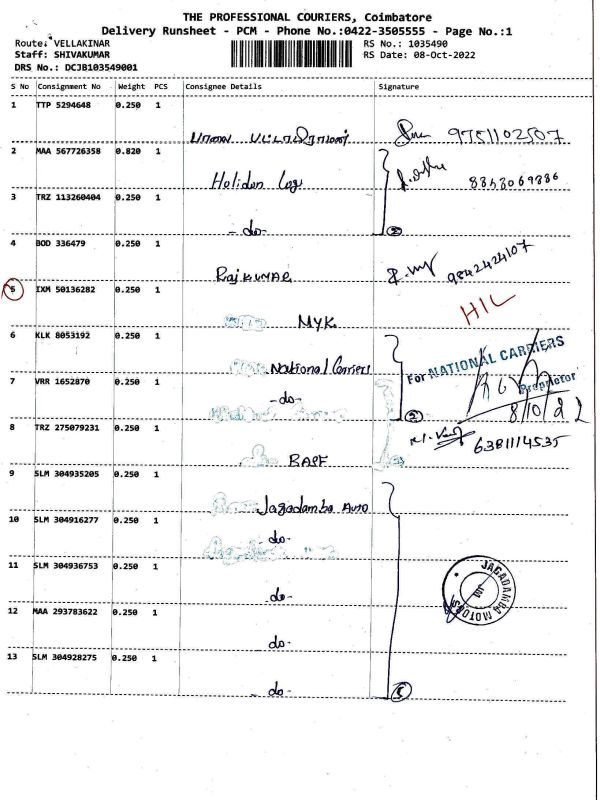 THE PROFESSIONAL COURIERS, Coimbatore
Delivery Runsheet - PCM - Phone No.:0422-3505555 - Page No.:1
Route: VELLAKINAR
RS No.: 1035490
Staff: SHIVAKUMAR
RS Date: 08-Oct-2022
DRS No.: DCJB103549001
S No Consignment No Weight PCS Consignee Details Signature
1 TTP 5294648 0.250 1
9751102507
2 MAA 567726358 0.820 1
3 TRZ 113260404 0.250 1
-do-
2
4 BOD 336479 0.250 1
RajKUMAR 9842424107
5 IXM 50136282 0.250 1
MYK HIL
6 KLK 8053192 0.250 1
National Carriers For NATIONAL CARRIERS
Proprietor
7 VRR 1652870 0.250 1
-do- 2 8/10/22
8 TRZ 275079231 0.250 1
6381114535
9 SLM 304935205 0.250 1
Jagadamba Auto
10 SLM 304916277 0.250 1
-do-
11 SLM 304936753 0.250 1
-do- JAGADAMBA MOTORS
12 MAA 293783622 0.250 1
-do-
13 SLM 304928275 0.250 1
-do- 5